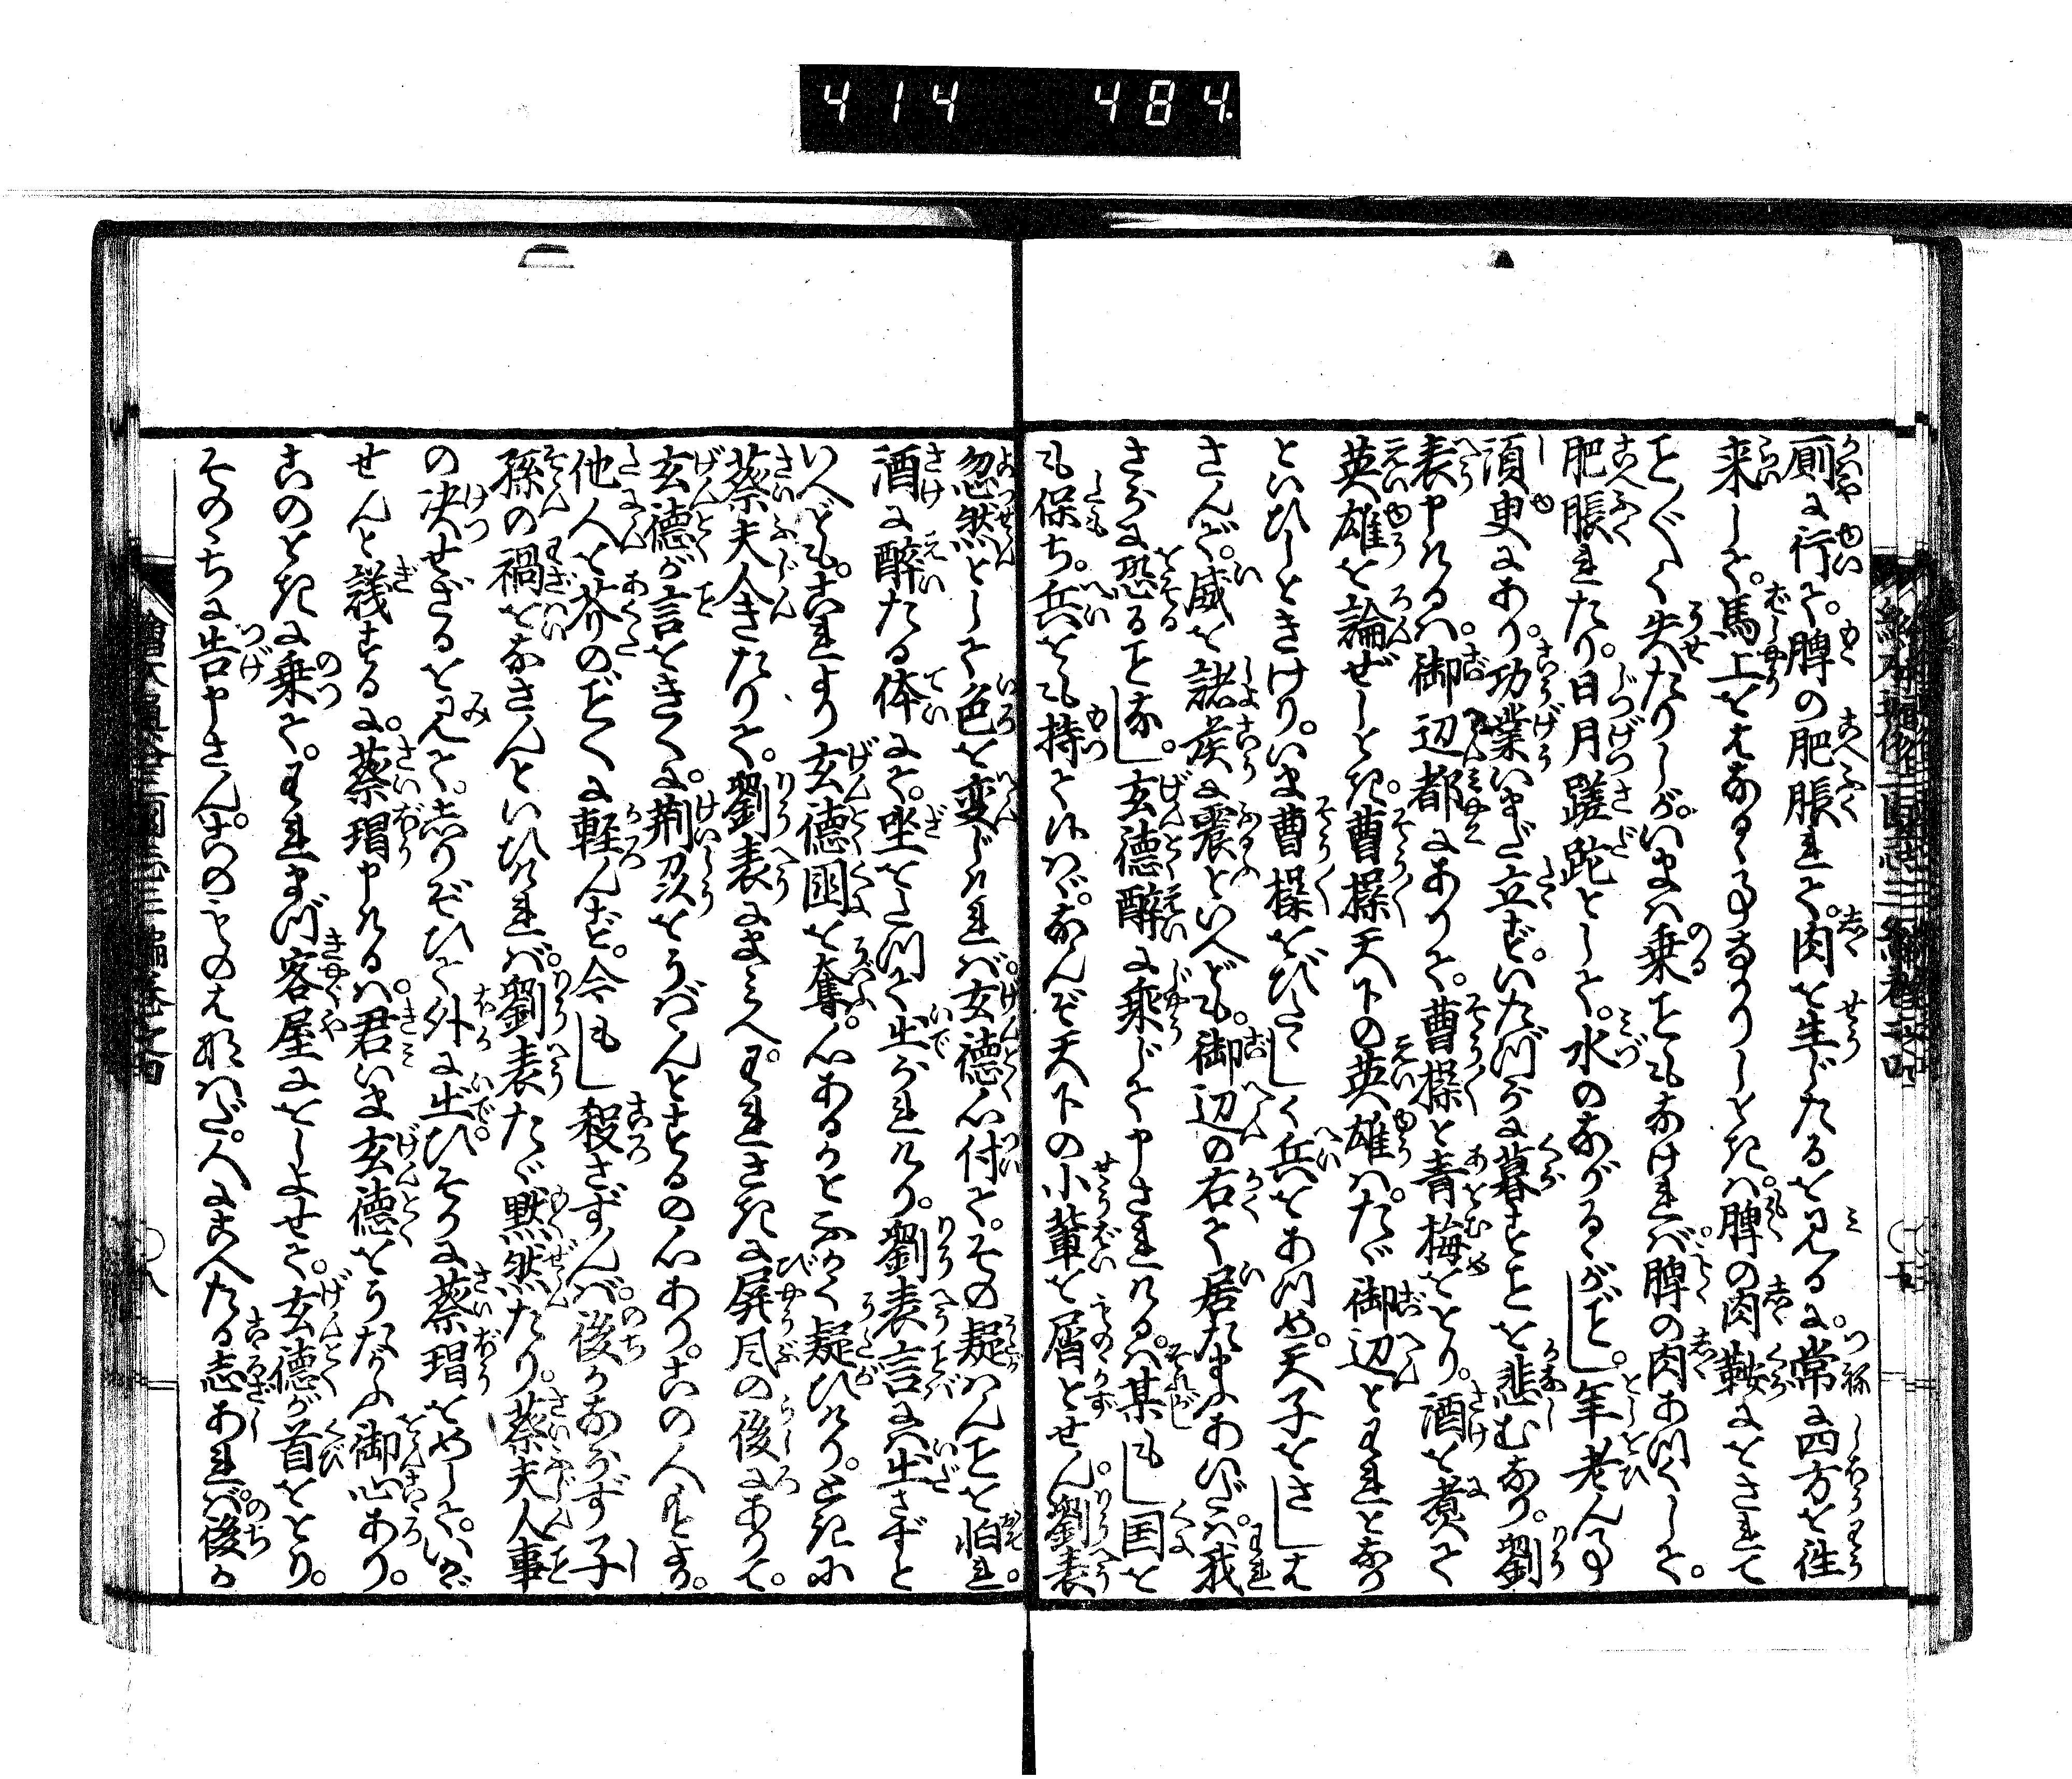 414 484
厠に行て。脾の肥脹れて。肉を生じたるを見るに。常に四方を往
来して。馬上をはなるゝ事なかりしとき。ハ脾の肉鞍にをされて
こと〴〵く失たりしが。いまハ乗こともなけれバ脾の肉あつくして。
肥脹れたり。日月蹉跎として。水のながるゝがごとし。年老んる事
須臾にあり。功業いまだ立ず。いたづらに暮すことを悲むなり。劉
表申けるハ。御辺都にありて。曹操と青梅をとり。酒を煮て
英雄を論ぜしとき。曹操天下の英雄ハ。たゞ御辺とわれとなり
といひしときけり。いま曹操をびたゝしく兵をあつめ。天子をさしは
さんで。威を諸侯に震といへども。御辺の右にて居たまふあいだハ。我
さらに恐ることなし。玄徳酔に乗じて申されけるハ。某もし国を
も保ち。兵をも持て候ハヾ。なんぞ天下の小輩を屑とせん。劉表
忽然として色を変じけれバ。玄徳心付て。その疑ハんことを怕れ。
酒に酔たる体にて。坐をたつて出られけり。劉表言にハ出さずと
いへども。これより玄徳国を奪。心あるかとふかく疑ひけり。ときに
蔡夫人きたりて。劉表にまみへ。われさきに屏風の後にありて。
玄徳が言をきくに。荊州をうばゝんとするの心あり。この人すこぶ。
他人を芥のごとくに軽んず。今もし殺さずんバ。後かならず子
孫の禍をなさんといひけれバ。劉表たゞ黙然たり。蔡夫人事
の決せざるを見て。しりぞひて外に出。ひそかに蔡瑁をめして。いかゞ
せんと議するに。蔡瑁申けるハ。君いま玄徳をうたがふ御心あり。
このときに乗て。われまづ客屋にをしよせて。玄徳が首をとり。
そのゝちに告申さん。このものは形はだ。人にこへたる志あれバ。後か